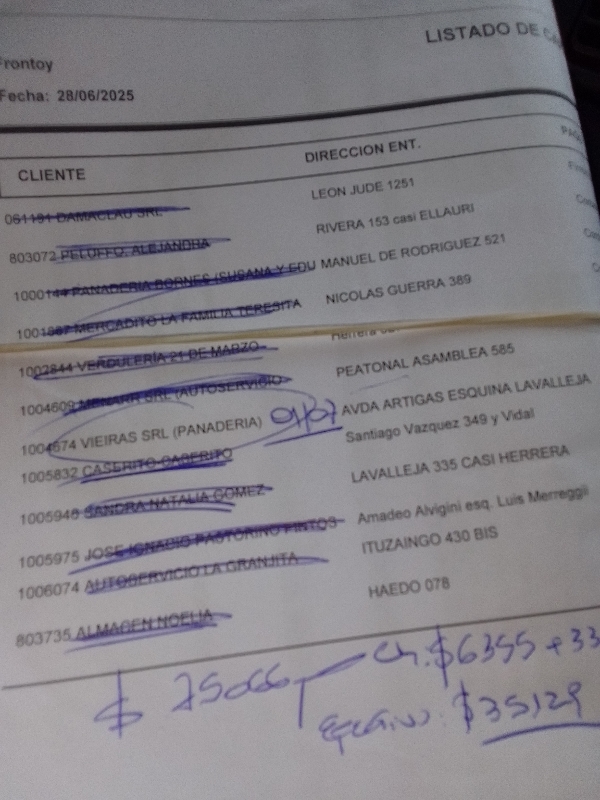 LISTADO DE
Frontoy
Fecha: 28/06/2025
CLIENTE DIRECCION ENT.
061191 DAMACLAU SRL LEON JUDE 1251
803072 PELUFFO, ALEJANDRA RIVERA 153 casi ELLAURI
1000144 PANADERIA BORNES (SUSANA Y EDU MANUEL DE RODRIGUEZ 521
1001887 MERCADITO LA FAMILIA TERESITA NICOLAS GUERRA 389
1002844 VERDULERIA 21 DE MARZO Herrera
1004609 MENARR SRL (AUTOSERVICIO PEATONAL ASAMBLEA 585
1004674 VIEIRAS SRL (PANADERIA) 01/07 AVDA ARTIGAS ESQUINA LAVALLEJA
1005832 CASERITO CASERITO Santiago Vazquez 349 y Vidal
1005948 SANDRA NATALIA GOMEZ LAVALLEJA 335 CASI HERRERA
1005975 JOSE IGNACIO PASTORINO PINTOS Amadeo Alvigini esq. Luis Merreggii
1006074 AUTOSERVICIO LA GRANJITA ITUZAINGO 430 BIS
803735 ALMACEN NOELIA HAEDO 078
$ 75066 Ch: $6355 + 33
Efectivo: $35129